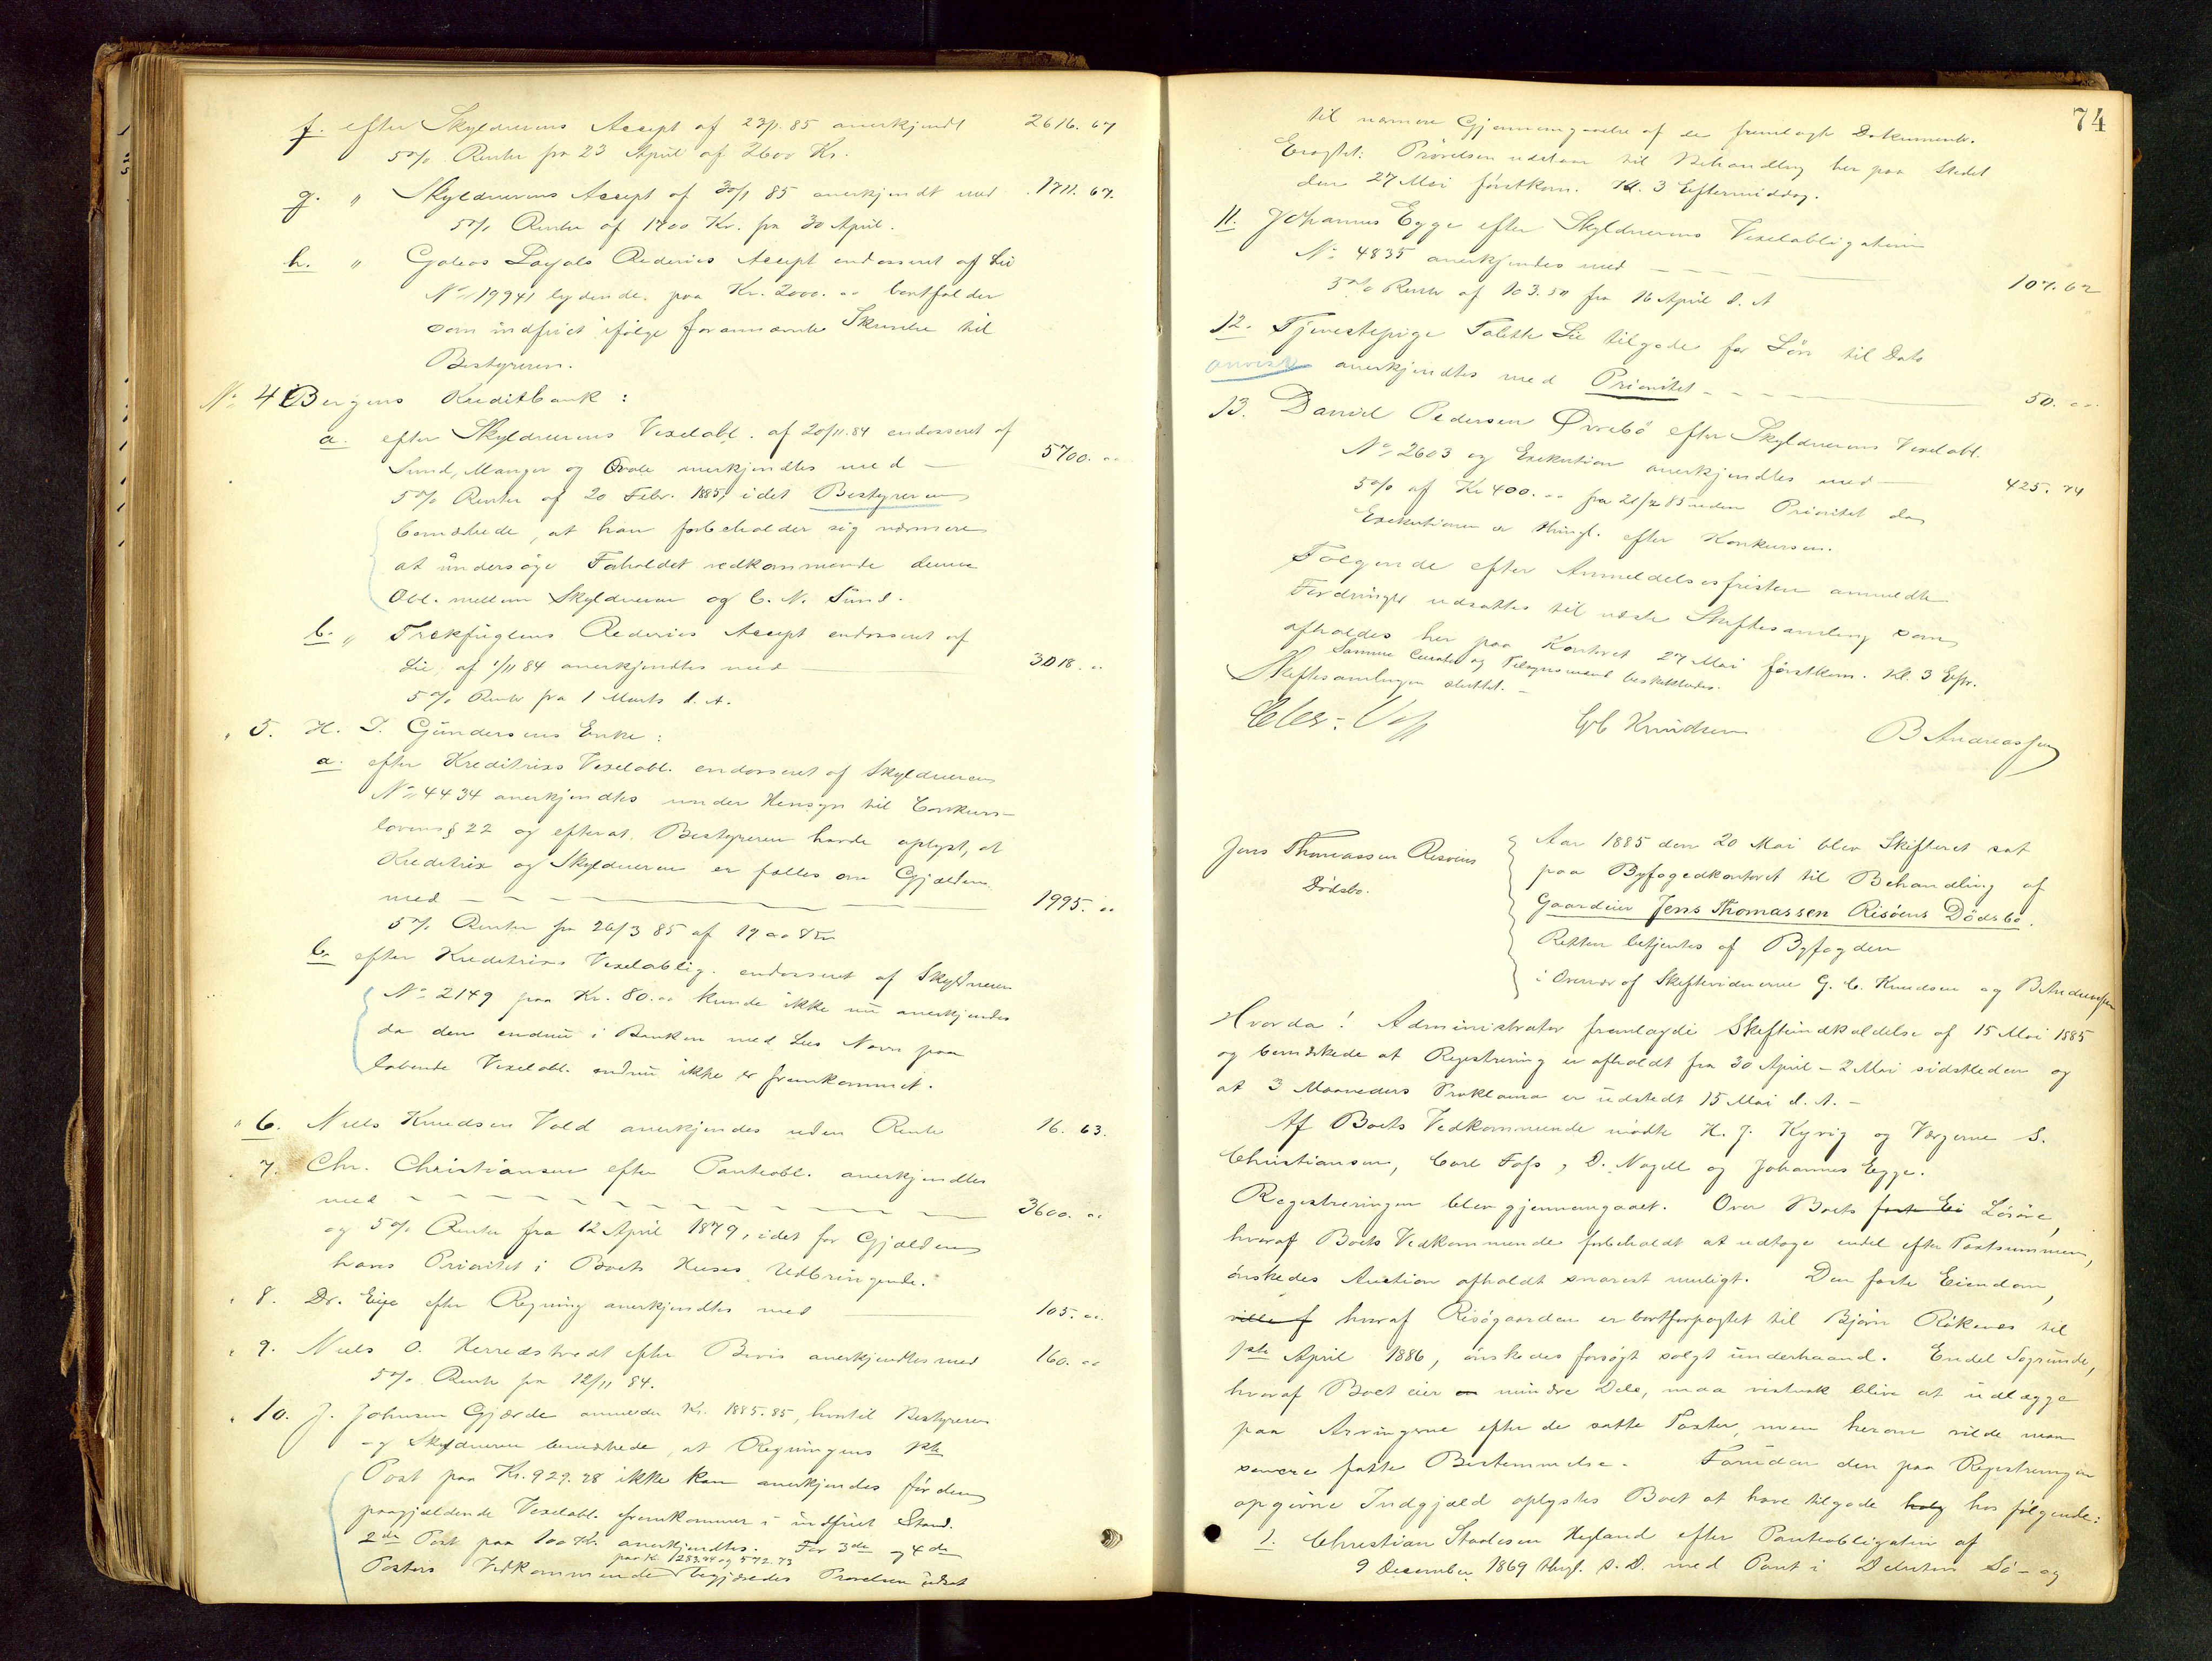 f. efter Skyldnerens Accept af 23/1. 85 anerkjendt 2616. 67
5 % Renter fra 23 April af 2600 Kr.
g. " Skyldnerens Accept af 30/1 85 anerkjendt med 1711. 67.
5 % Renter af 1700 Kr. fra 30 April.
h. " Galeas Rederies Accept endosseret af Lie
No 19941 lydende paa Kr. 2000. " bortfalder
som indfriet ifølge forannævnte Skrivelse til
Bestyreren.
No 4 Bergens Kreditbank :
a. efter Skyldnerens Vexelobl. af 20/11.84 endosseret af
Sund, Manger og Qvale anerkjendtes med — 5700. "
5 % Renter af 20 Febr. 1885, idet Bestyreren
bemærkede, at han forbeholder sig nærmere
at undersøge Forholdet vedkommende denne
Obl. mellem Skyldneren og C. N. Sund.
b. " Trekfuglens Rederies Accept endosseret af
Lie, af 1/11 84 anerkjendtes med — 3018. "
5 % Renter fra 1 Marts d. A.
" 5. H. D. Gundersens Enke :
a. efter Kreditrixs Vexelobl. endosseret af Skyldneren
No 4434 anerkjendtes under Hensyn til Conkurs-
lovens § 22 og efterat Bestyreren havde oplyst, at
Kreditrix og Skyldneren er fælles om Gjælden
med — 1995. "
5 % Renter fra 26/3 85 af 1900 Kr
b. efter Kreditrixs Vexeloblig. endosseret af Skyldneren
No 2149 paa Kr. 80. " kunde ikke nu anerkjendes
da den endnu i Banken med Lies Navn paa
løbende Vexelobl. endnu ikke er fremkommet.
" 6. Niels Knudsen Vold anerkjendes uden Rente 16. 63.
7. Chr. Christiansen efter Panteobl. anerkjendtes
med — 3600. "
og 5 % Renter fra 12 April 1879, idet for Gjælden
haves Prioritet i Boets Huses Udbringende.
" 8. Dr. Eije efter Regning anerkjendtes med — 105. "
" 9. Niels O. Herredstvedt efter Bevis anerkjendtes med 160. "
5 % Rente fra 12/11 84.
" 10. J. Johnsen Gjærde anmelder Kr. 1885.85, hvortil Bestyreren
og Skyldneren bemærkede, at Regningens 1ste
Post paa Kr. 929.28 ikke kan anerkjendes før den
paagjældende Vexelobl. fremkommer i indfriet Stand.
2den Post paa 100 Kr. anerkjendtes. For 3die og 4de
paa Kr. 1283.84 og 572.73
Posters Vedkommende begjæredes Prøvelsen udsat
74
til nærmere Gjennemgaaelse af de fremlagte Dokumenter.
Eragtet: Prøvelsen udstaar til Behandling her paa Stedet
den 27 Mai førstkom. Kl. 3 Eftermiddag.
11. Johannes Egge efter Skyldnerens Vexelobligation
No 4835 anerkjendes med — 107. 62
5 % Renter af 103.50 fra 16 April d. A
12. Tjenestepige Tolette Lie tilgode for Løn til Dato
anvist anerkjendtes med Prioritet — 50. "
13. Daniel Pedersen Øvrebø efter Skyldnerens Vexelobl.
No 2603 og Exekution anerkjendtes med — 425. 74
5 % af Kr 400. " fra 21/2 85 uden Prioritet da
Exekutionen er thingl. efter Konkursen.
Følgende efter Anmeldelsesfristen anmeldte
Fordringer udsattes til næste Skiftesamling som
afholdes her paa Kontoret 27 Mai førstkom. Kl. 3 Eftr.
Samme Curator og Tilsynsmænd beskikkedes.
Skiftesamlingen sluttet. —
G C Knudsen B Andreassen
Jens Thomassen Risøens
Dødsbo.
Aar 1885 den 20 Mai blev Skifteret sat
paa Byfogedkontoret til Behandling af
Gaardeier Jens Thomassen Risøens Dødsbo.
Retten betjentes af Byfogden
i Overvær af Skiftevidnerne G. C. Knudsen og B. Andreassen
Hvorda! Administrator fremlagde Skifteindkaldelse af 15 Mai 1885
og bemærkede at Registrering er afholdt fra 30 April - 2 Mai sidstleden og
at 3 Maaneders Proklama er udstedt 15 Mai d. A. —
Af Boets Vedkommende mødte H. J. Kyvig og Værgerne S.
Christiansen, Carl Foss, D. Nagell og Johannes Egge.
Registreringen blev gjennemgaaet. Over Boets faste Ei Løsøre,
hvoraf Boets Vedkommende forbeholdt at udtage endel efter Taxtsummen,
ønskedes Auction afholdt snarest muligt. Den faste Eiendom,
ville f hvoraf Risøgaarden er bortforpagtet til Bjørn Røkenes til
1ste April 1886, ønskedes forsøgt solgt underhaand. Endel Søgrunde,
hvoraf Boet eier en mindre Dele, maa vistnok blive at udlægge
paa Arvingerne efter de satte Taxter, men herom vilde man
senere fatte Bestemmelse. Foruden den paa Registreringen
opgivne Indgjæld oplystes Boet at have tilgode hos følgende:
1. Christian Staalesen Høyland efter Panteobligation af
9 December 1869 thingl. s. D. med Pant i Debitors Sø- og